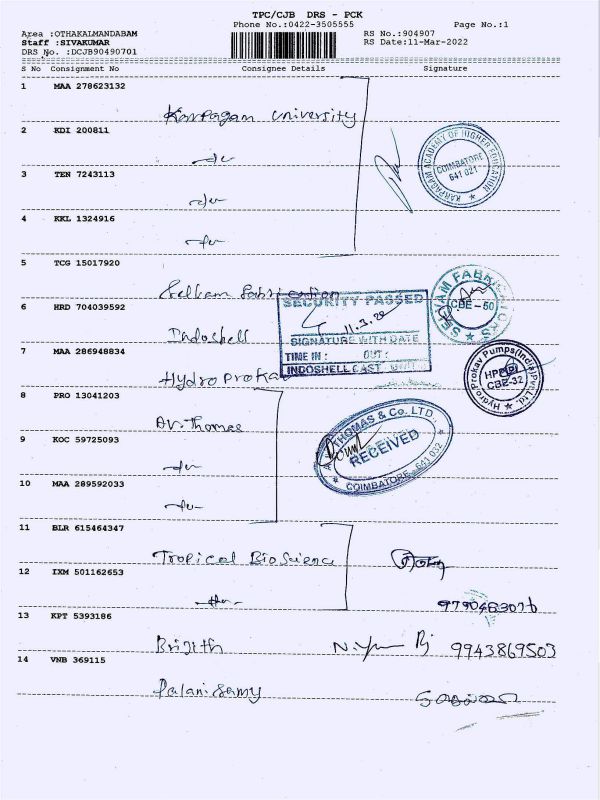 TPC/CJB DRS - PCK
Phone No.:0422-3505555 Page No.:1
Area :OTHAKALMANDABAM RS No.:904907
Staff :SIVAKUMAR RS Date:11-Mar-2022
DRS No. :DCJB90490701
S No Consignment No Consignee Details Signature
1 MAA 278623132
Karpagam University
2 KDI 200811
KARPAGAM ACADEMY OF HIGHER EDUCATION
COIMBATORE
641 021
3 TEN 7243113
4 KKL 1324916
5 TCG 15017920
Selvam Fabrication
SELVAM FABRICATIONS
CBE-50
6 HRD 704039592
Indoshell
SECURITY PASSED
11.3.22
SIGNATURE WITH DATE
TIME IN : OUT :
INDOSHELL CAST UNIT
7 MAA 286948834
Hydro Prokav
Hydro Prokav Pumps(India)Pvt.Ltd.
CBE-32
8 PRO 13041203
AV. Thomas
THOMAS & Co. LTD
RECEIVED
COIMBATORE - 641 032
9 KOC 59725093
10 MAA 289592033
11 BLR 615464347
Tropical BioScience
12 IXM 501162653
9790463076
13 KPT 5393186
Brijith 9943869503
14 VNB 369115
Palanisamy